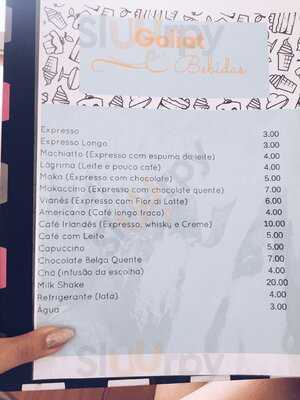 Goliat
Bebidas
Expresso 3.00
Expresso Longo 3.00
Machiatto (Expresso com espuma de leite) 4.00
Lágrima (Leite e pouco café) 4.00
Moka (Expresso com chocolate) 5.00
Mokaccino (Expresso com chocolate quente) 7.00
Vianês (Expresso com Fior di Latte) 6.00
Americano (Café longo fraco) 4.00
Café Irlandês (Expresso, whisky e Creme) 10.00
Café com Leite 5.00
Capuccino 5.00
Chocolate Belga Quente 7.00
Chá (infusão da escolha) 4.00
Milk Shake 20.00
Refrigerante (lata) 4.00
Água 3.00
Sluurpy